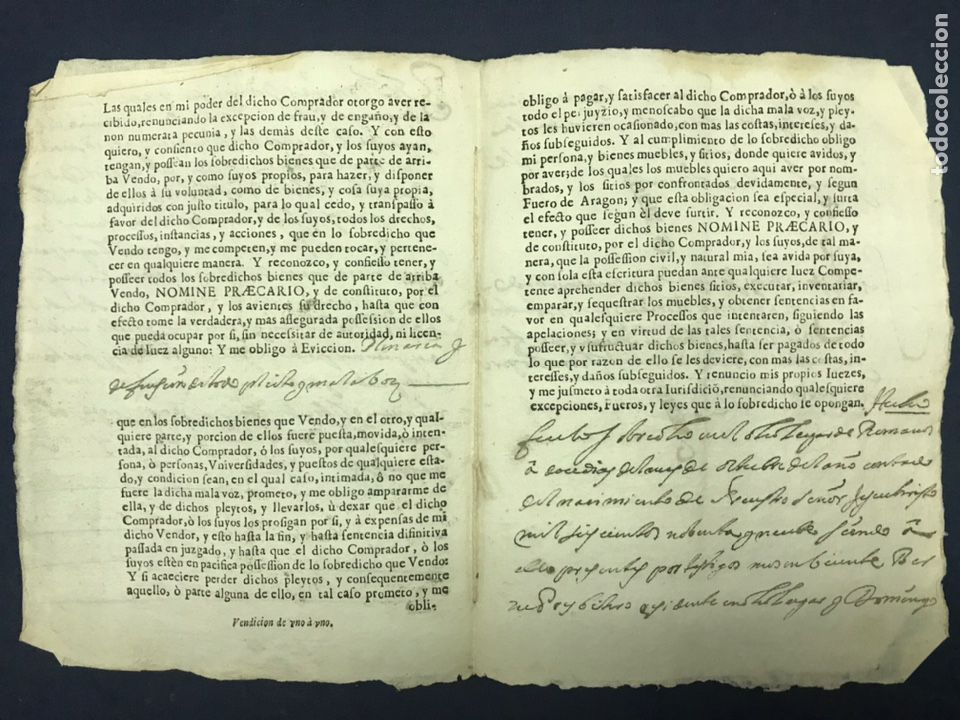 Las quales en mi poder del dicho Comprador otorgo aver re-
cibido, renunciando la excepcion de frau, y de engaño, y de la
non numerata pecunia, y las demás deste caso. Y con esto
quiero, y consiento que dicho Comprador, y los suyos ayan,
tengan, y possean los sobredichos bienes que de parte de arri-
ba Vendo, por, y como suyos propios, para hazer, y disponer
de ellos à su voluntad, como de bienes, y cosa suya propia,
adquiridos con justo titulo, para lo qual cedo, y transpasso à
favor del dicho Comprador, y de los suyos, todos los drechos,
processos, instancias, y acciones, que en lo sobredicho que
Vendo tengo, y me competen, y me pueden tocar, y pertene-
cer en qualquiere manera. Y reconozco, y confiesso tener, y
posseer todos los sobredichos bienes que de parte de arriba
Vendo, NOMINE PRÆCARIO, y de constituto, por el
dicho Comprador, y los avientes su drecho, hasta que con
efecto tome la verdadera, y mas assegurada possession de ellos
que pueda ocupar por si, sin necessitar de autoridad, ni licen-
cia de Iuez alguno: Y me obligo à Eviccion. Plenaria y
de qualquier pleito y mala boz
que en los sobredichos bienes que Vendo, y en el otro, y qual-
quiere parte, y porcion de ellos fuere puesta, movida, ò inten-
tada, al dicho Comprador, ò los suyos, por qualesquiere per-
sona, ò personas, Vniversidades, y puestos de qualquiere esta-
do, y condicion sean, en el qual caso, intimada, ò no que me
fuere la dicha mala voz, prometo, y me obligo ampararme de
ella, y de dichos pleytos, y llevarlos, ù dexar que el dicho
Comprador, ò los suyos los prosigan por si, y à expensas de mi
dicho Vendor, y esto hasta la fin, y hasta sentencia difinitiva
passada en juzgado, y hasta que el dicho Comprador, ò los
suyos estèn en pacifica possession de lo sobredicho que Vendo:
Y si acaeciere perder dichos pleytos, y consequentemente
aquello, ò parte alguna de ello, en tal caso prometo, y me
obli-
Vendicion de vno à vno.
obligo à pagar, y satisfacer al dicho Comprador, ò à los suyos
todo el perjuyzio, y menoscabo que la dicha mala voz, y pley-
tos les huvieren ocasionado, con mas las costas, intereses, y da-
ños subseguidos. Y al cumplimiento de lo sobredicho obligo
mi persona, y bienes muebles, y sitios, donde quiere avidos, y
por aver; de los quales los muebles quiero aqui aver por nom-
brados, y los sitios por confrontados devidamente, y segun
Fuero de Aragon; y que esta obligacion sea especial, y surta
el efecto que segun èl deve surtir. Y reconozco, y confiesso
tener, y posseer dichos bienes NOMINE PRÆCARIO, y
de constituto, por el dicho Comprador, y los suyos, de tal ma-
nera, que la possession civil, y natural mia, sea avida por suya,
y con sola esta escritura puedan ante qualquiere Iuez Compe-
tente aprehender dichos bienes sitios, executar, inventariar,
emparar, y sequestrar los muebles, y obtener sentencias en fa-
vor en qualesquiere Processos que intentaren, siguiendo las
apelaciones; y en virtud de las tales sentencia, ò sentencias
posseer, y usufructuar dichos bienes, hasta ser pagados de todo
lo que por razon de ello se les deviere, con mas las costas, in-
teresses, y daños subseguidos. Y renuncio mis propios Iuezes,
y me jusmeto à toda otra Iurisdiciò, renunciando qualesquiere
excepciones, Fueros, y leyes que à lo sobredicho se opongan. Hecho
fue lo sobredicho en el dicho lugar de Romanos
a doce dias del mes de octubre del año contado
del nacimiento de Nuestro Señor Jesuchristo
mil seiscientos nobenta y nuebe siendo a
ello presentes por testigos
en dicho lugar y Domingo
todocoleccion